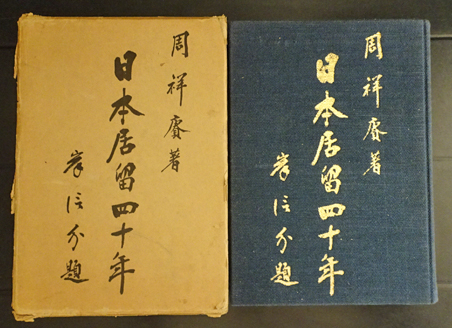 周祥賡著
日本居留四十年
岸信介題
周祥賡著
日本居留四十年
岸信介題